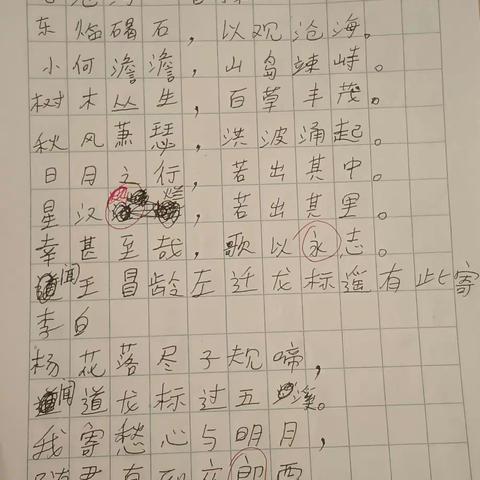 东临碣石，以观沧海。
小何澹澹，山岛竦峙。
树木丛生，百草丰茂。
秋风萧瑟，洪波涌起。
日月之行，若出其中。
星汉 烂，若出其里。
幸甚至哉，歌以永志。
闻王昌龄左迁龙标遥有此寄
李白
杨花落尽子规啼，
闻道龙标过五溪。
我寄愁心与明月，
随君直到 郎西